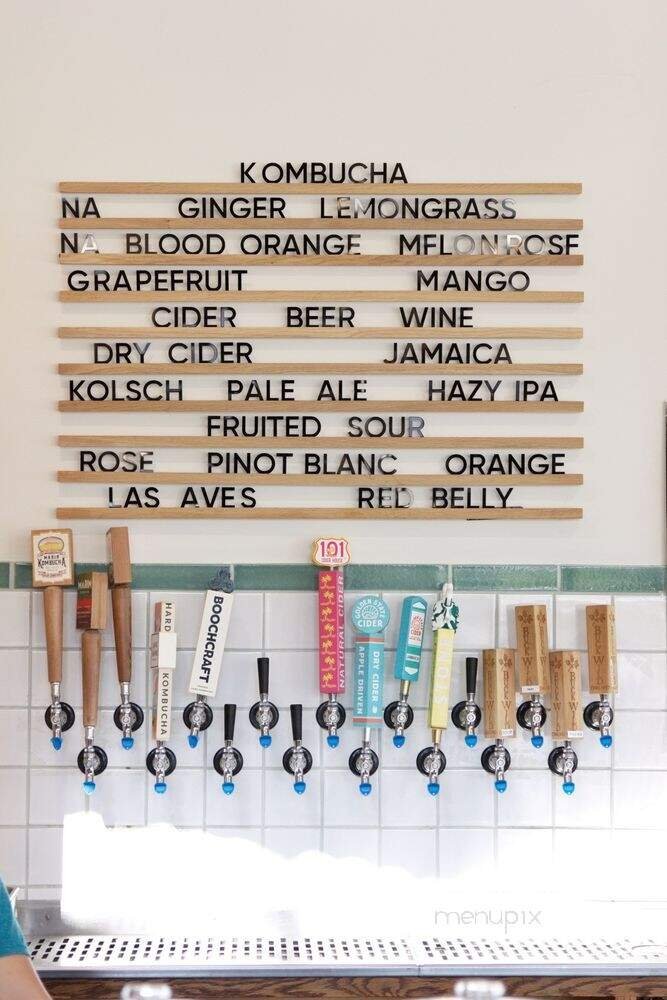 KOMBUCHA
NA GINGER LEMONGRASS
NA BLOOD ORANGE MELON ROSE
GRAPEFRUIT MANGO
CIDER BEER WINE
DRY CIDER JAMAICA
KOLSCH PALE ALE HAZY IPA
FRUITED SOUR
ROSE PINOT BLANC ORANGE
LAS AVES RED BELLY
101
CIDER HOUSE
KOMBUCHA
HARD
KOMBUCHA
BOOCHCRAFT
NATURAL CIDER
GOLDEN STATE
CIDER
DRY CIDER
APPLE DRIVEN
BREW
BREW
BREW
BREW
menupix